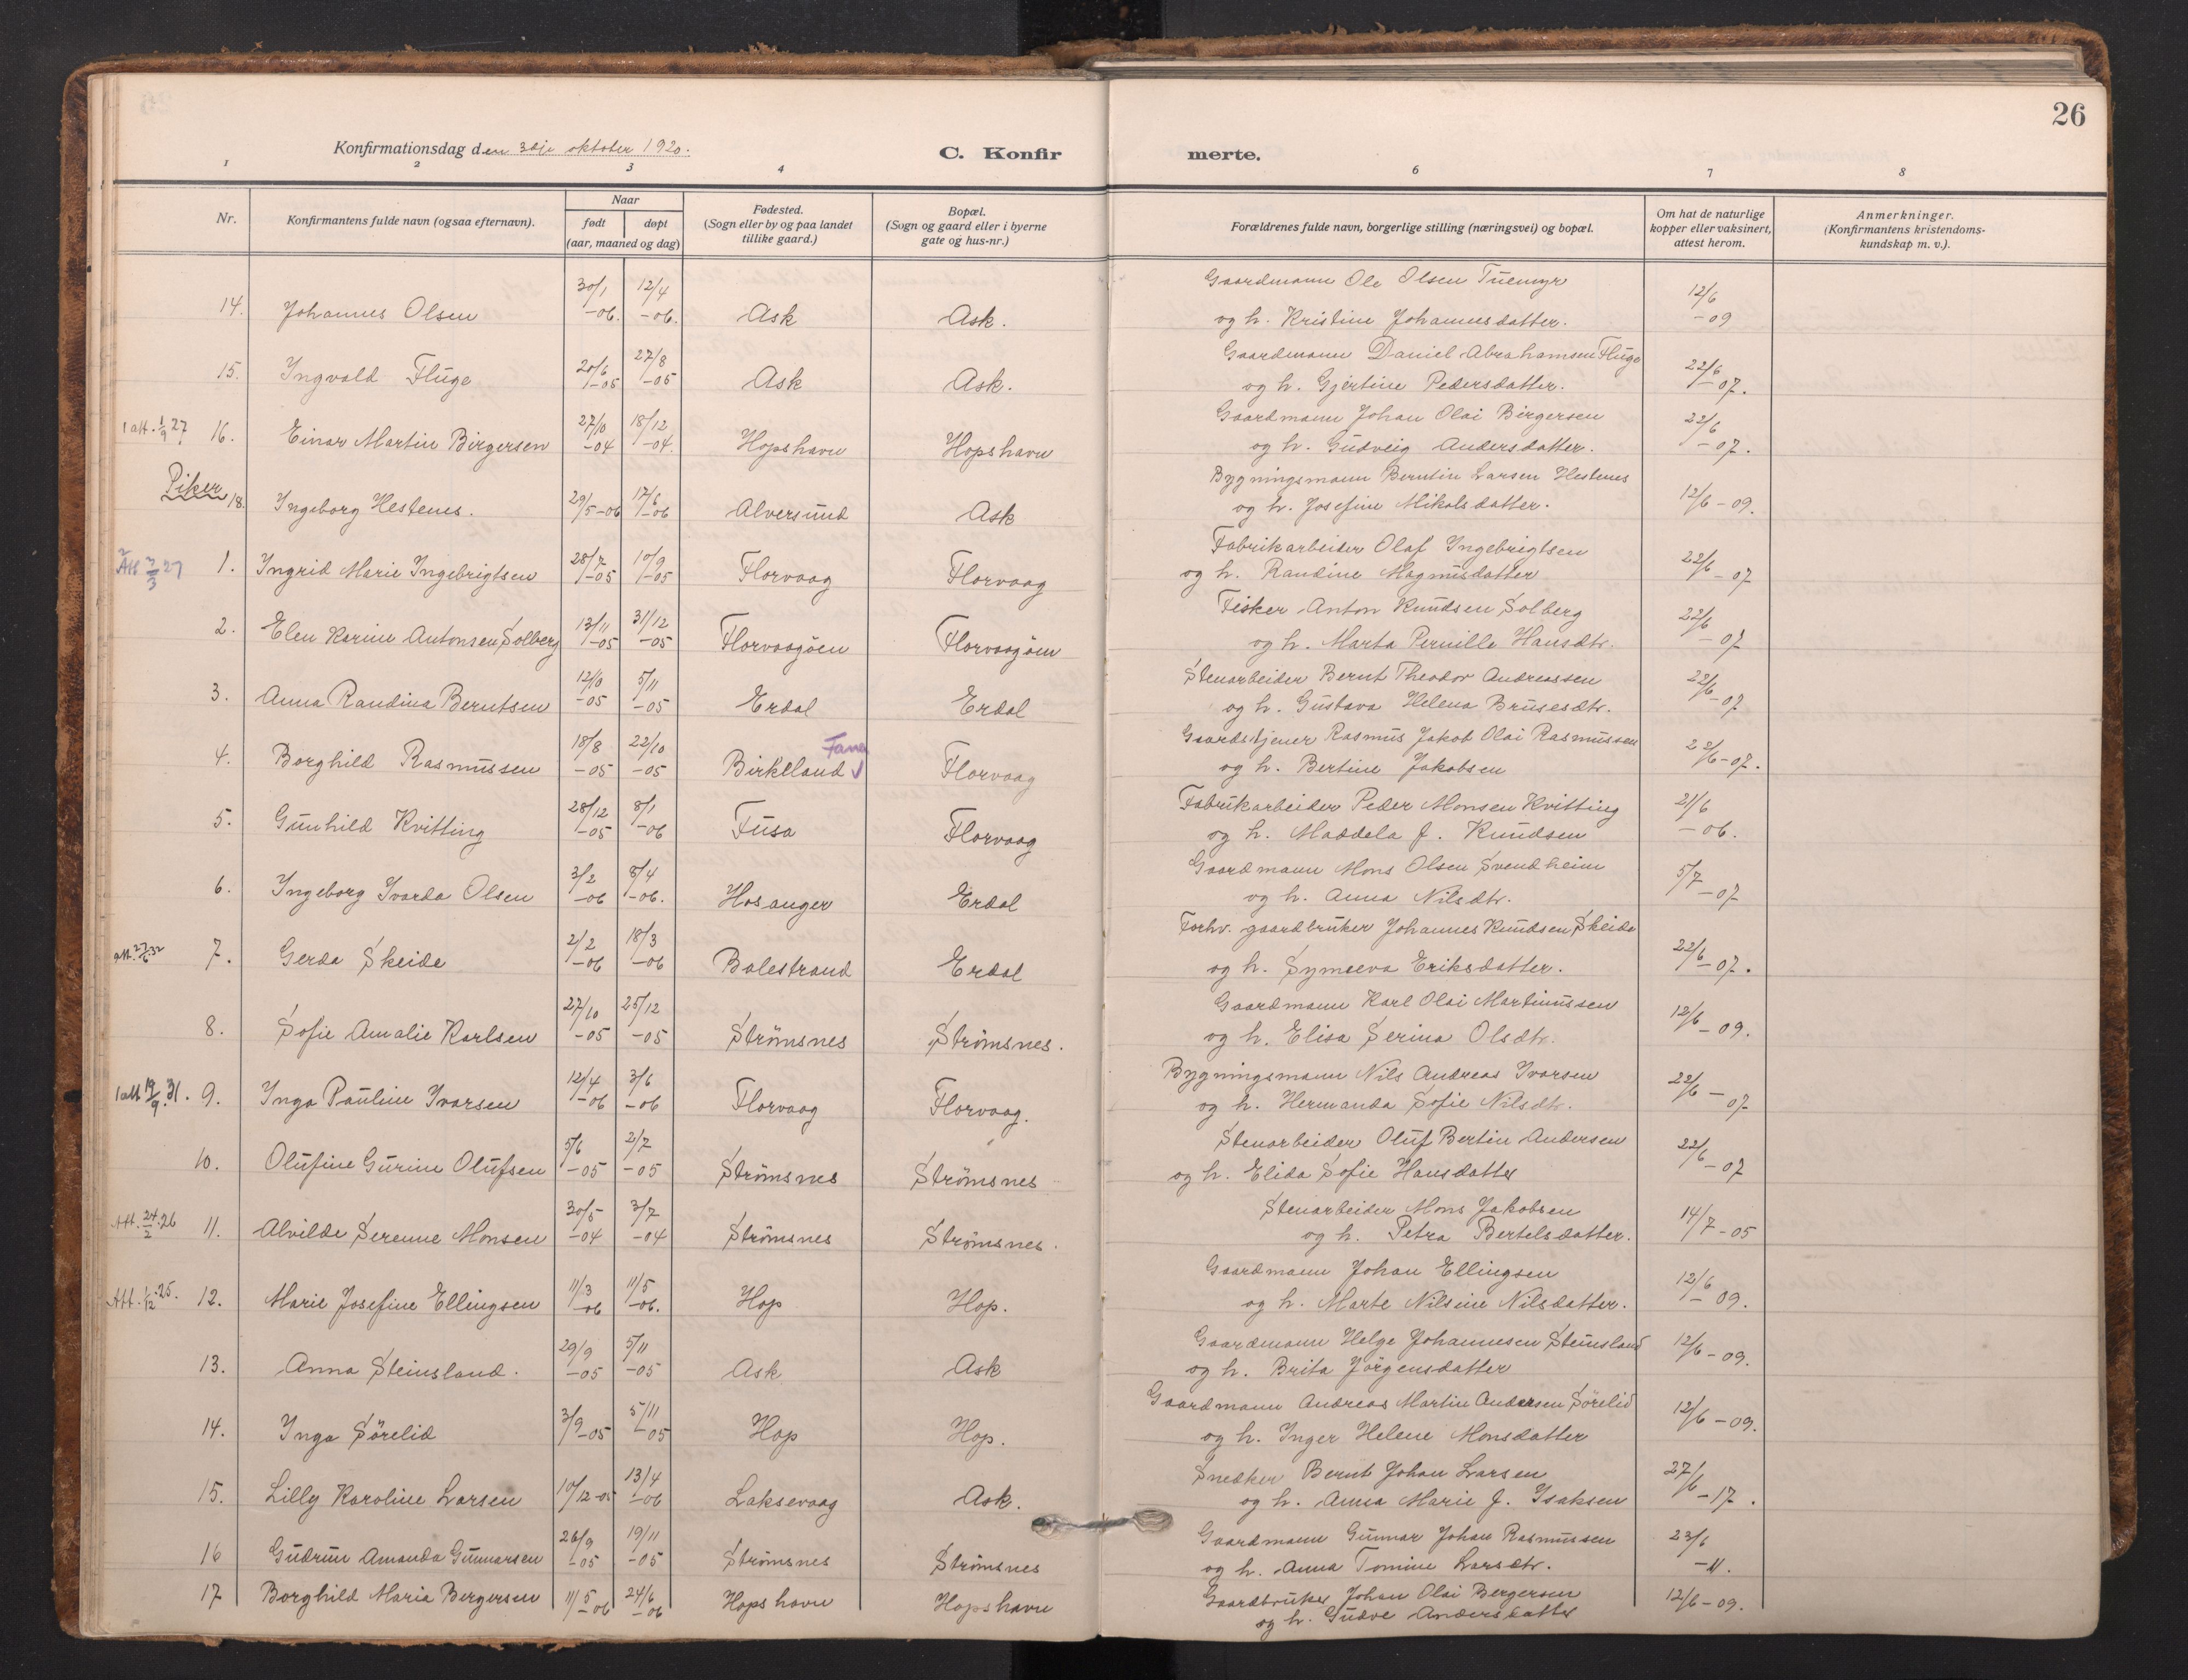 26
Konfirmationsdag den 3dje oktober 1920.
C. Konfirmerte.
1 2 3 4 6 7 8
Nr.
Konfirmantens fulde navn (ogsaa efternavn).
Naar
født døpt
(aar, maaned og dag)
Fødested.
(Sogn eller by og paa landet
tillike gaard.)
Bopæl.
(Sogn og gaard eller i byerne
gate og hus-nr.)
Forældrenes fulde navn, borgerlige stilling (næringsvei) og bopæl.
Om hat de naturlige
kopper eller vaksinert,
attest herom.
Anmerkninger.
(Konfirmantens kristendoms-
kundskap m. v.).
14. Johannes Olsen 30/1 -06. 12/4 -06. Ask Ask. Gaardmann Ole Olsen Tuemyr
og h. Kristine Johannesdatter. 12/6 -09
15. Ingvald Fluge 20/6 -05 27/8 -05 Ask Ask. Gaardmann Daniel Abrahamsen Fluge
og h. Gjertine Pedersdatter. 22/6 -07.
1 att. 1/9 27 16. Einar Martin Birgersen 27/10 -04 18/12 -04. Hopshavn Hopshavn Gaardmann Johan Olai Birgersen
og h. Gudveig Andersdatter. 22/6 -07.
Piker
18. Ingeborg Hestenes. 29/5 -06 17/6 -06 Alversund Ask Bygningsmann Berntin Larsen Hestenes
og h. Josefine Mikalsdatter. 12/6 -09.
2 Att 2/3 27 1. Ingrid Marie Ingebrigtsen 28/7 -05 10/9 -05 Florvaag Florvaag Fabrikarbeider Olaf Ingebrigtsen
og h. Randine Magnusdatter 22/6 -07
2. Elen Karine Antonsen Solberg 13/11 -05 31/12 -05 Florvaagöen Florvaagöen Fisker Anton Knudsen Solberg
og h. Marta Pernille Hansdtr. 22/6 -07
3. Anna Randina Berntsen 12/10 -05 5/11 -05 Erdal Erdal Stenarbeider Bernt Theodor Andreassen
og h. Gustava Helena Brusesdtr. 22/6 -07
4. Borghild Rasmussen 18/8 -05 22/10 -05 Birkeland Fana Florvaag Gaardstjener Rasmus Jakob Olai Rasmussen
og h. Bertine Jakobsen 22/6 -07.
5. Gunhild Kvitting 28/12 -05 8/1 -06 Fusa Florvaag Fabrikarbeider Peder Monsen Kvitting
og h. Maddela J. Knudsen 21/6 -06.
6. Ingeborg Ivarda Olsen 3/2 -06 8/4 -06. Hosanger Erdal Gaardmann Mons Olsen Svendheim
og h. Anna Nilsdtr. 5/7 -07
att. 27/6 32 7. Gerda Skeide 2/2 -06 18/3 -06 Balestrand Erdal Forhv. gaardbruker Johannes Knudsen Skeide
og h. Synneva Eriksdatter. 22/6 -07.
8. Sofie Amalie Karlsen 27/10 -05 25/12 -05 Strömsnes Strömsnes. Gaardmann Karl Olai Martinussen
og h. Elisa Serina Olsdtr. 12/6 -09.
1 att 19/9 31. 9. Inga Pauline Ivarsen 12/4 -06 3/6 -06 Florvaag Florvaag. Bygningsmann Nils Andreas Ivarsen
og h. Hermanda Sofie Nilsdtr. 22/6 -07
10. Olufine Gurine Olufsen 5/6 -05 2/7 -05 Strömsnes Strömsnes Stenarbeider Oluf Bertin Andersen
og h. Elida Sofie Hansdatter 22/6 -07
Att. 24/2 26 11. Alvilde Serenne Monsen 30/5 -04 3/7 -04 Strömsnes Strömsnes. Stenarbeider Mons Jakobsen
og h. Petra Bertelsdatter. 14/7 -05
Att. 1/12 25. 12. Marie Josefine Ellingsen 11/3 -06 11/5 -06. Hop Hop. Gaardmann Johan Ellingsen
og h. Marte Nilsine Nilsdatter. 12/6 -09.
13. Anna Steinsland. 29/9 -05 5/11 -05 Ask Ask Gaardmann Helge Johannesen Steinsland
og h. Brita Jörgensdatter 12/6 -09.
14. Inga Sörelid 3/9 -05 5/11 -05 Hop Hop. Gaardmann Andreas Martin Andersen Sörelid
og h. Inger Helene Monsdatter 12/6 -09.
15. Lilly Karoline Larsen 10/12 -05 13/4 -06 Laksevaag Ask. Snedker Bernt Johan Larsen
og h. Anna Marie J. Isaksen 27/6 -17.
16 Gudrun Amanda Gunnarsen 26/9 -05 19/11 -05 Strömsnes Strömsnes Gaardmann Gunnar Johan Rasmussen
og h. Anna Tomine Larsdtr. 23/6 -11.
17 Borghild Maria Bergersen 11/5 -06 24/6 -06 Hopshavn Hopshavn Gaardbruker Johan Olai Bergersen
og h. Gudve Andersdatter 12/6 -09.